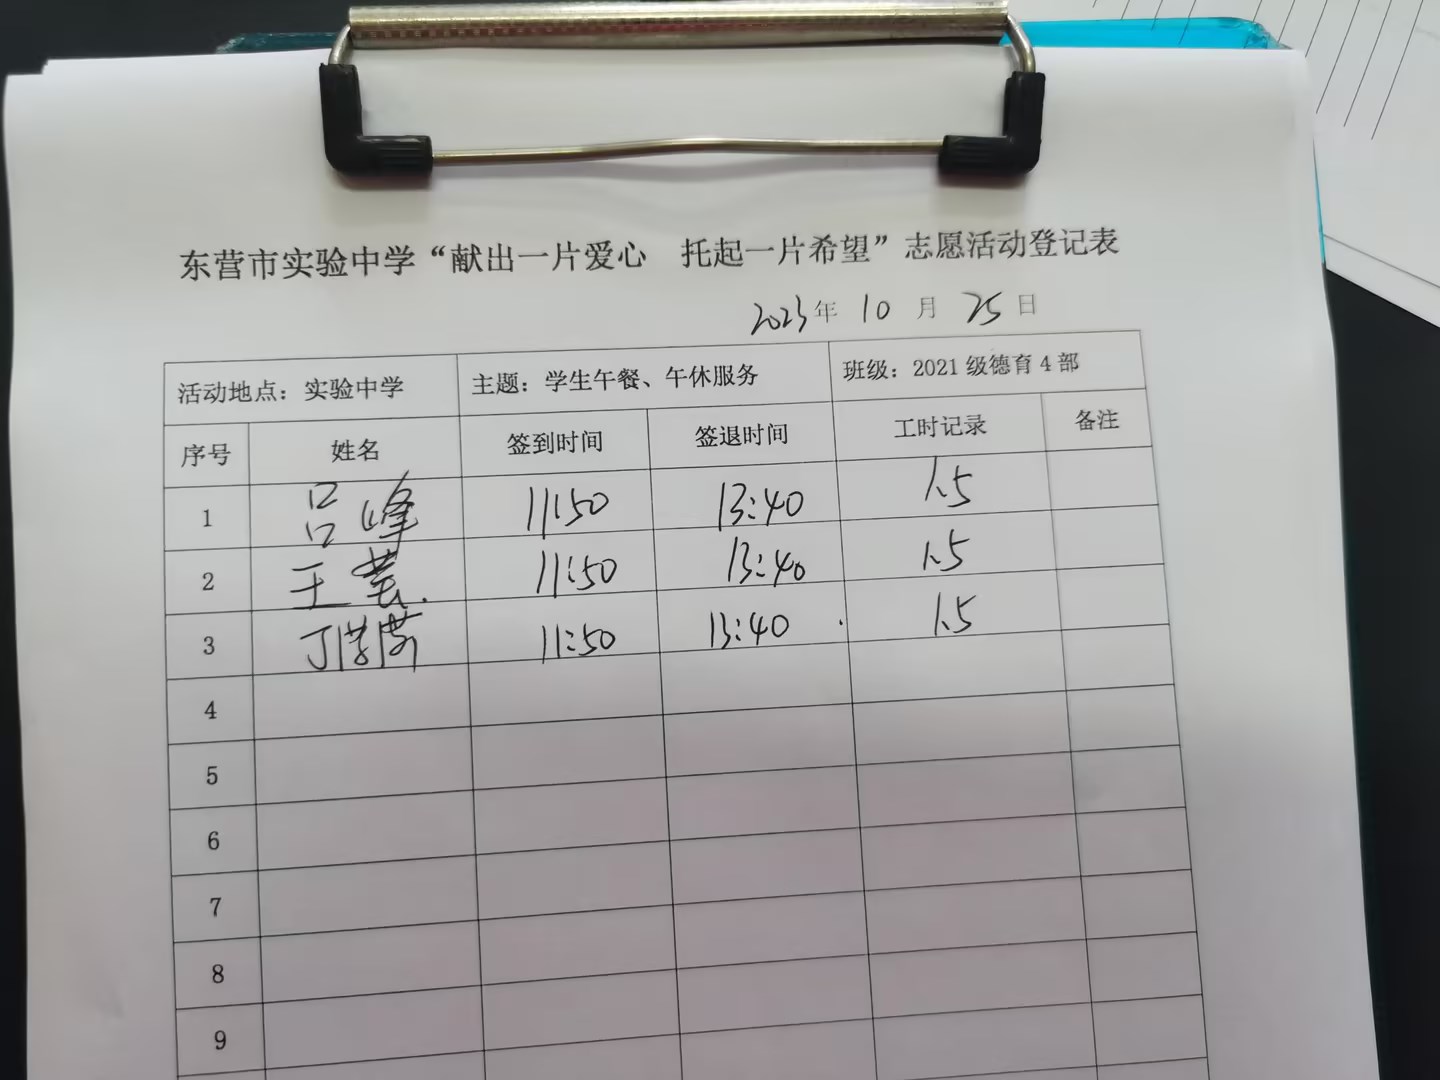 东营市实验中学“献出一片爱心 托起一片希望”志愿活动登记表
2023年 10 月 25 日
活动地点：实验中学 主题：学生午餐、午休服务 班级：2021 级德育 4 部
序号 姓名 签到时间 签退时间 工时记录 备注
1 吕峰 11:50 13:40 1.5
2 王 11:50 13:40 1.5
3 丁 11:50 13:40 1.5
4
5
6
7
8
9